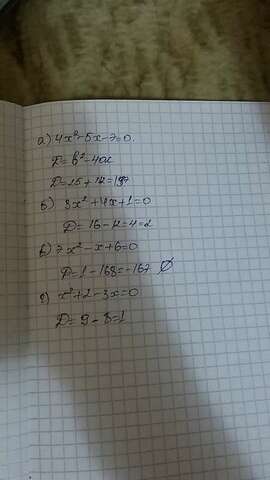 а) 4x²-5x-7=0.
D=b²-4ac
D=25+112=137
б) 3x²+4x+1=0
D=16-12=4=2
в) 7x²-x+6=0
D=1-168=-167 ∅
г) x²+2-3x=0
D=9-8=1